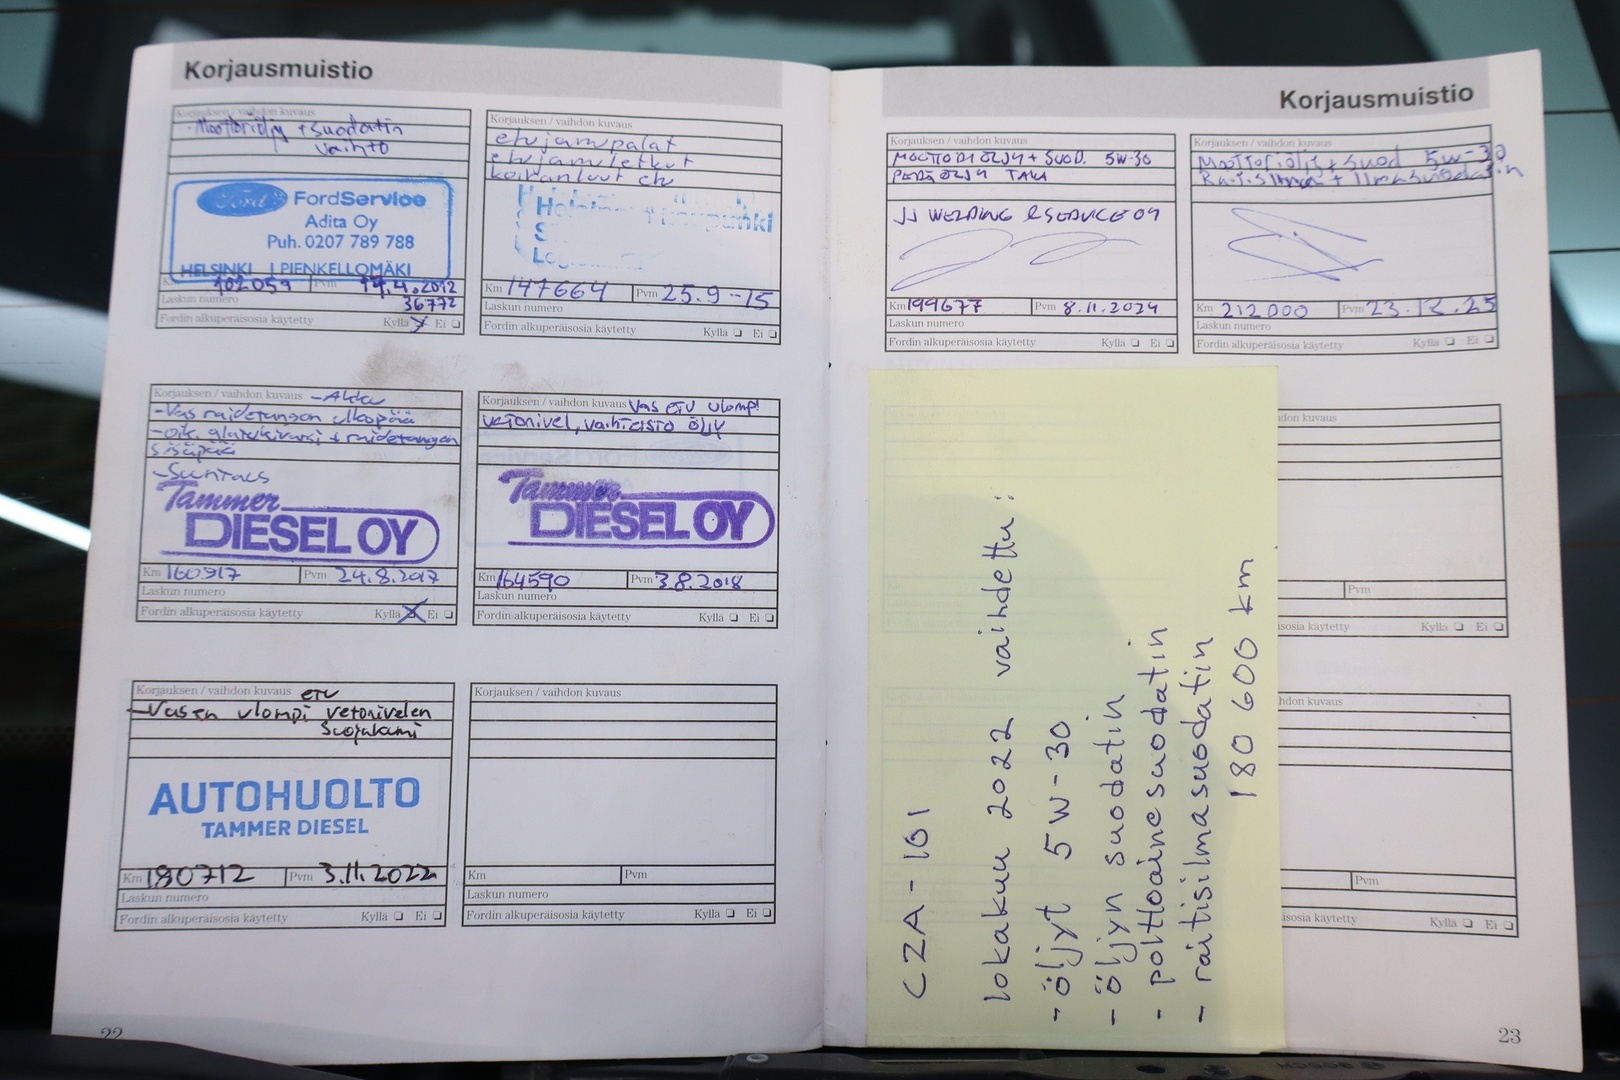 Korjausmuistio
Korjauksen / vaihdon kuvaus
-Moottoriöljy + suodatin
vaihto
Ford FordService
Adita Oy
Puh. 0207 789 788
HELSINKI
PIENKELLOMÄKI
102059
Pvm 17.4.2012
Laskun numero 36772
Fordin alkuperäisosia käytetty Kyllä Ei
Korjauksen / vaihdon kuvaus
etujarrupalat
etujarruletkut
koiranluut etu
Km 147664 Pvm 25.9-15
Laskun numero
Fordin alkuperäisosia käytetty Kyllä Ei
Korjauksen / vaihdon kuvaus -Akku
-Vas raidetangon ulkopää
-oik. alatukivarsi + raidetangon
sisäpää
-Suntaus
Tammer
DIESEL OY
Km 160917 Pvm 24.8.2017
Laskun numero
Fordin alkuperäisosia käytetty Kyllä Ei
Korjauksen / vaihdon kuvaus Vas etu ulompi
vetonivel, vaihteisto öljy
Tammer
DIESEL OY
Km 164590 Pvm 3.8.2018
Laskun numero
Fordin alkuperäisosia käytetty Kyllä Ei
Korjauksen / vaihdon kuvaus etu
-Vasen ulompi vetonivelen
suojakumi
AUTOHUOLTO
TAMMER DIESEL
Km 180712 Pvm 3.11.2022
Laskun numero
Fordin alkuperäisosia käytetty Kyllä Ei
Korjauksen / vaihdon kuvaus
Km Pvm
Laskun numero
Fordin alkuperäisosia käytetty Kyllä Ei
22
Korjausmuistio
Korjauksen / vaihdon kuvaus
MOOTTORI ÖLJY + SUOD. 5W-30
PERÄ ÖLJY TAKA
JJ WELDING & SERVICE OY
Km 199677 Pvm 8.11.2024
Laskun numero
Fordin alkuperäisosia käytetty Kyllä Ei
Korjauksen / vaihdon kuvaus
Moottoriöljy + Suod 5w-30
Km 212000 Pvm
Laskun numero
Fordin alkuperäisosia käytetty Kyllä Ei
CZA-101
lokakuu 2022 vaihdettu:
- öljyt 5W-30
- öljyn suodatin
- polttoainesuodatin
- raitisilmasuodatin
180 600 km
hdon kuvaus
Pvm
äisosia käytetty Kyllä Ei
hdon kuvaus
Pvm
äisosia käytetty Kyllä Ei
23
BOSCH